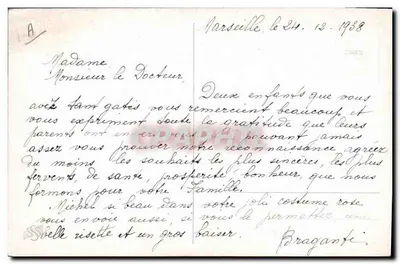 A
Marseille, le 24-12-1938
Madame
Monsieur le Docteur,
Deux enfants que vous
avez tant gatés vous remercient beaucoup et
vous expriment toute la gratitude que leurs
parents ont en vous pouvant jamais
assez vous prouver notre reconnaissance, agréez
du moins les souhaits les plus sincères, les plus
fervents, de santé, prospérité bonheur, que nous
formons pour votre Famille.
Michel si beau dans votre joli costume rose
vous envoie aussi, si vous le permettez, une
belle risette et un gros baiser.
Braganti